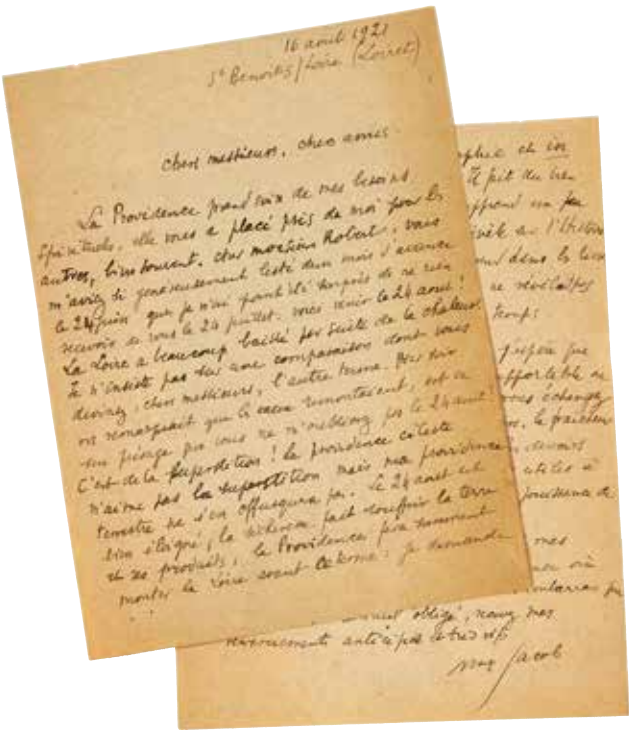 16 aout 1921
St Benoit s/Loire (Loiret)
chers messieurs, chers amis.
La Providence prend soin de mes besoins
spirituels, elle vous a placé près de moi pour les
autres, bien souvent. cher monsieur Robert, vous
m'aviez si généreusement lesté d'un mois d'avance
le 24 juin que je n'ai point été surpris de ne rien
recevoir de vous le 24 juillet. vous venir le 24 aout!
La Loire a beaucoup baissé par suite de la chaleur
Je n'insiste pas sur une comparaison dont vous
devinez, chers messieurs, l'autre terme. Hier soir
on remarquait que les eaux remontaient, est ce
un présage que vous ne m'oublierez pas le 24 aout!
C'est de la superstition! la providence céleste
n'aime pas la superstition mais ma providence
terrestre ne s'en offusquera pas. Le 24 aout est
bien éloigné, la sécheresse fait souffrir la terre
et ses produits, la Providence fera surement
monter la Loire avant ce terme: je demande
phie et
Il fit du
apprend un peu
sur l'Histoire
dans les
ne
temps
j'espère que
supportable
vous échangez
la fraicheur
devoirs
utiles à
jouissance de
mes
où
obligé, many mes
remerciements anticipés et très vifs
max Jacob